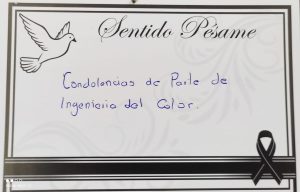 Sentido Pésame
Condolencias de Parte de
Ingenieria del Color.